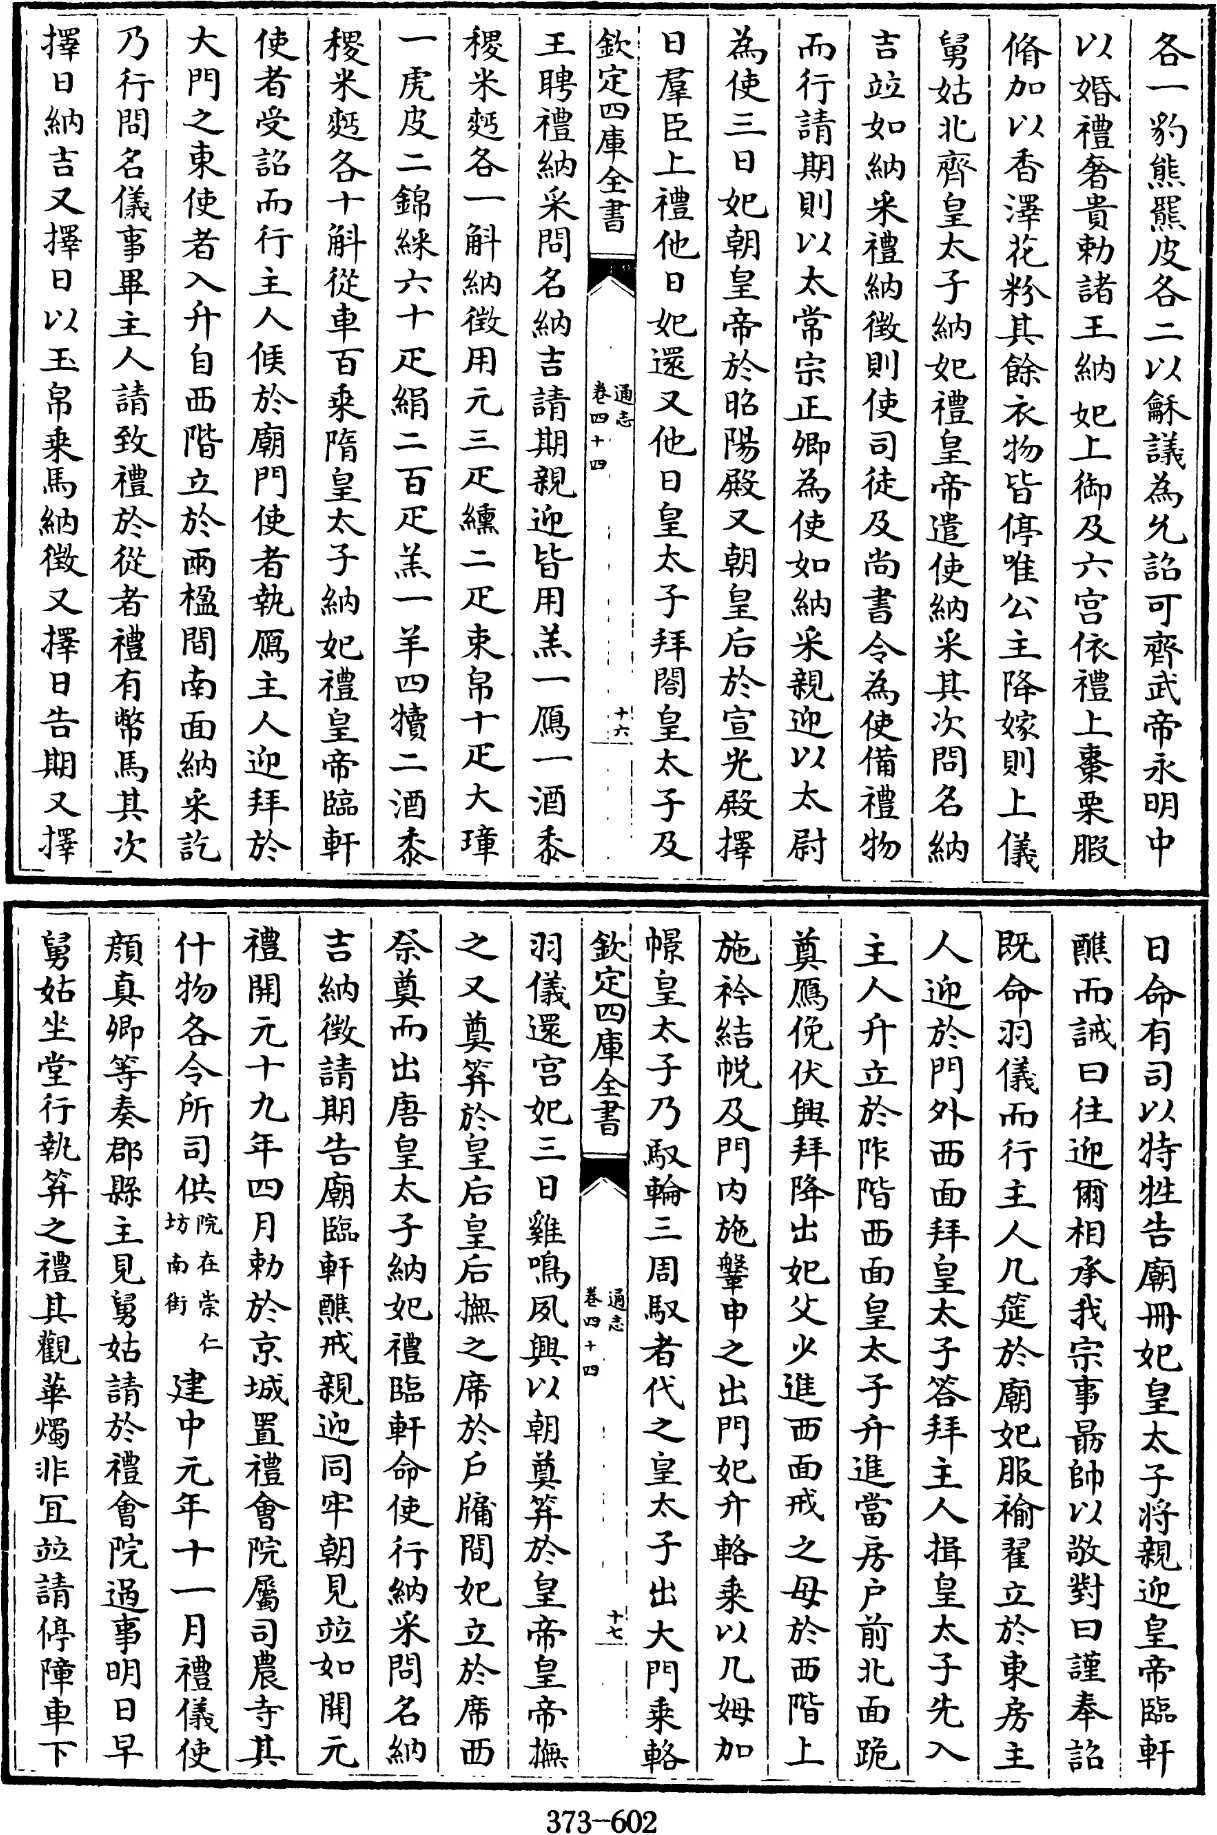 各一豹熊羆皮各二以龢議為允詔可齊武帝永明中
以婚禮奢貴勅諸王納妃上御及六宫依禮上棗栗腶
脩加以香澤花粉其餘衣物皆停唯公主降嫁則上儀
舅姑北齊皇太子納妃禮皇帝遣使納采其次問名納
吉竝如納采禮納徵則使司徒及尚書令為使備禮物
而行請期則以太常宗正卿為使如納采親迎以太尉
為使三日妃朝皇帝於昭陽殿又朝皇后於宣光殿擇
日羣臣上禮他日妃還又他日皇太子拜閤皇太子及
欽定四庫全書
通志
卷四十四
十六
王聘禮納采問名納吉請期親迎皆用羔一鴈一酒黍
稷米麪各一斛納徵用元三疋纁二疋束帛十疋大璋
一虎皮二錦綵六十疋絹二百疋羔一羊四犢二酒黍
稷米麪各十斛從車百乘隋皇太子納妃禮皇帝臨軒
使者受詔而行主人俟於廟門使者執鴈主人迎拜於
大門之東使者入升自西階立於兩楹間南面納采訖
乃行問名儀事畢主人請致禮於從者禮有幣馬其次
擇日納吉又擇日以玉帛乘馬納徵又擇日告期又擇
日命有司以特牲告廟冊妃皇太子將親迎皇帝臨軒
醮而誡曰往迎爾相承我宗事勗帥以敬對曰謹奉詔
既命羽儀而行主人几筵於廟妃服褕翟立於東房主
人迎於門外西面拜皇太子答拜主人揖皇太子先入
主人升立於阼階西面皇太子升進當房户前北面跪
奠鴈俛伏興拜降出妃父少進西面戒之母於西階上
施衿結帨及門内施鞶申之出門妃升輅乘以几姆加
幜皇太子乃馭輪三周馭者代之皇太子出大門乘輅
欽定四庫全書
通志
卷四十四
十七
羽儀還宫妃三日雞鳴夙興以朝奠笲於皇帝皇帝撫
之又奠笲於皇后皇后撫之席於户牖間妃立於席西
祭奠而出唐皇太子納妃禮臨軒命使行納采問名納
吉納徵請期告廟臨軒醮戒親迎同牢朝見竝如開元
禮開元十九年四月勅於京城置禮會院屬司農寺其
什物各令所司供院在崇仁坊南街建中元年十一月禮儀使
顔真卿等奏郡縣主見舅姑請於禮會院過事明日早
舅姑坐堂行執笲之禮其觀華燭非冝竝請停障車下
373-602